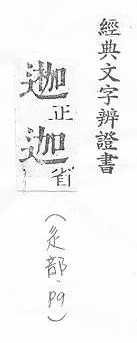 經典文字辨證書
正
迦省
(辵部.P9)